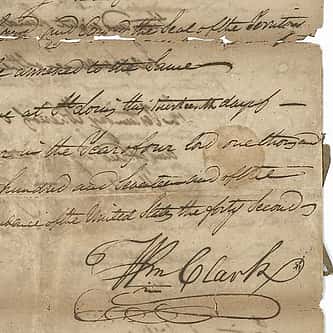 and the Seal of the Territory
be annexed to the Same
at St Louis, this nineteenth day of
in the Year of our Lord one thousand
hundred and Seventeen and of the
of the United States the forty Second
Wm Clark